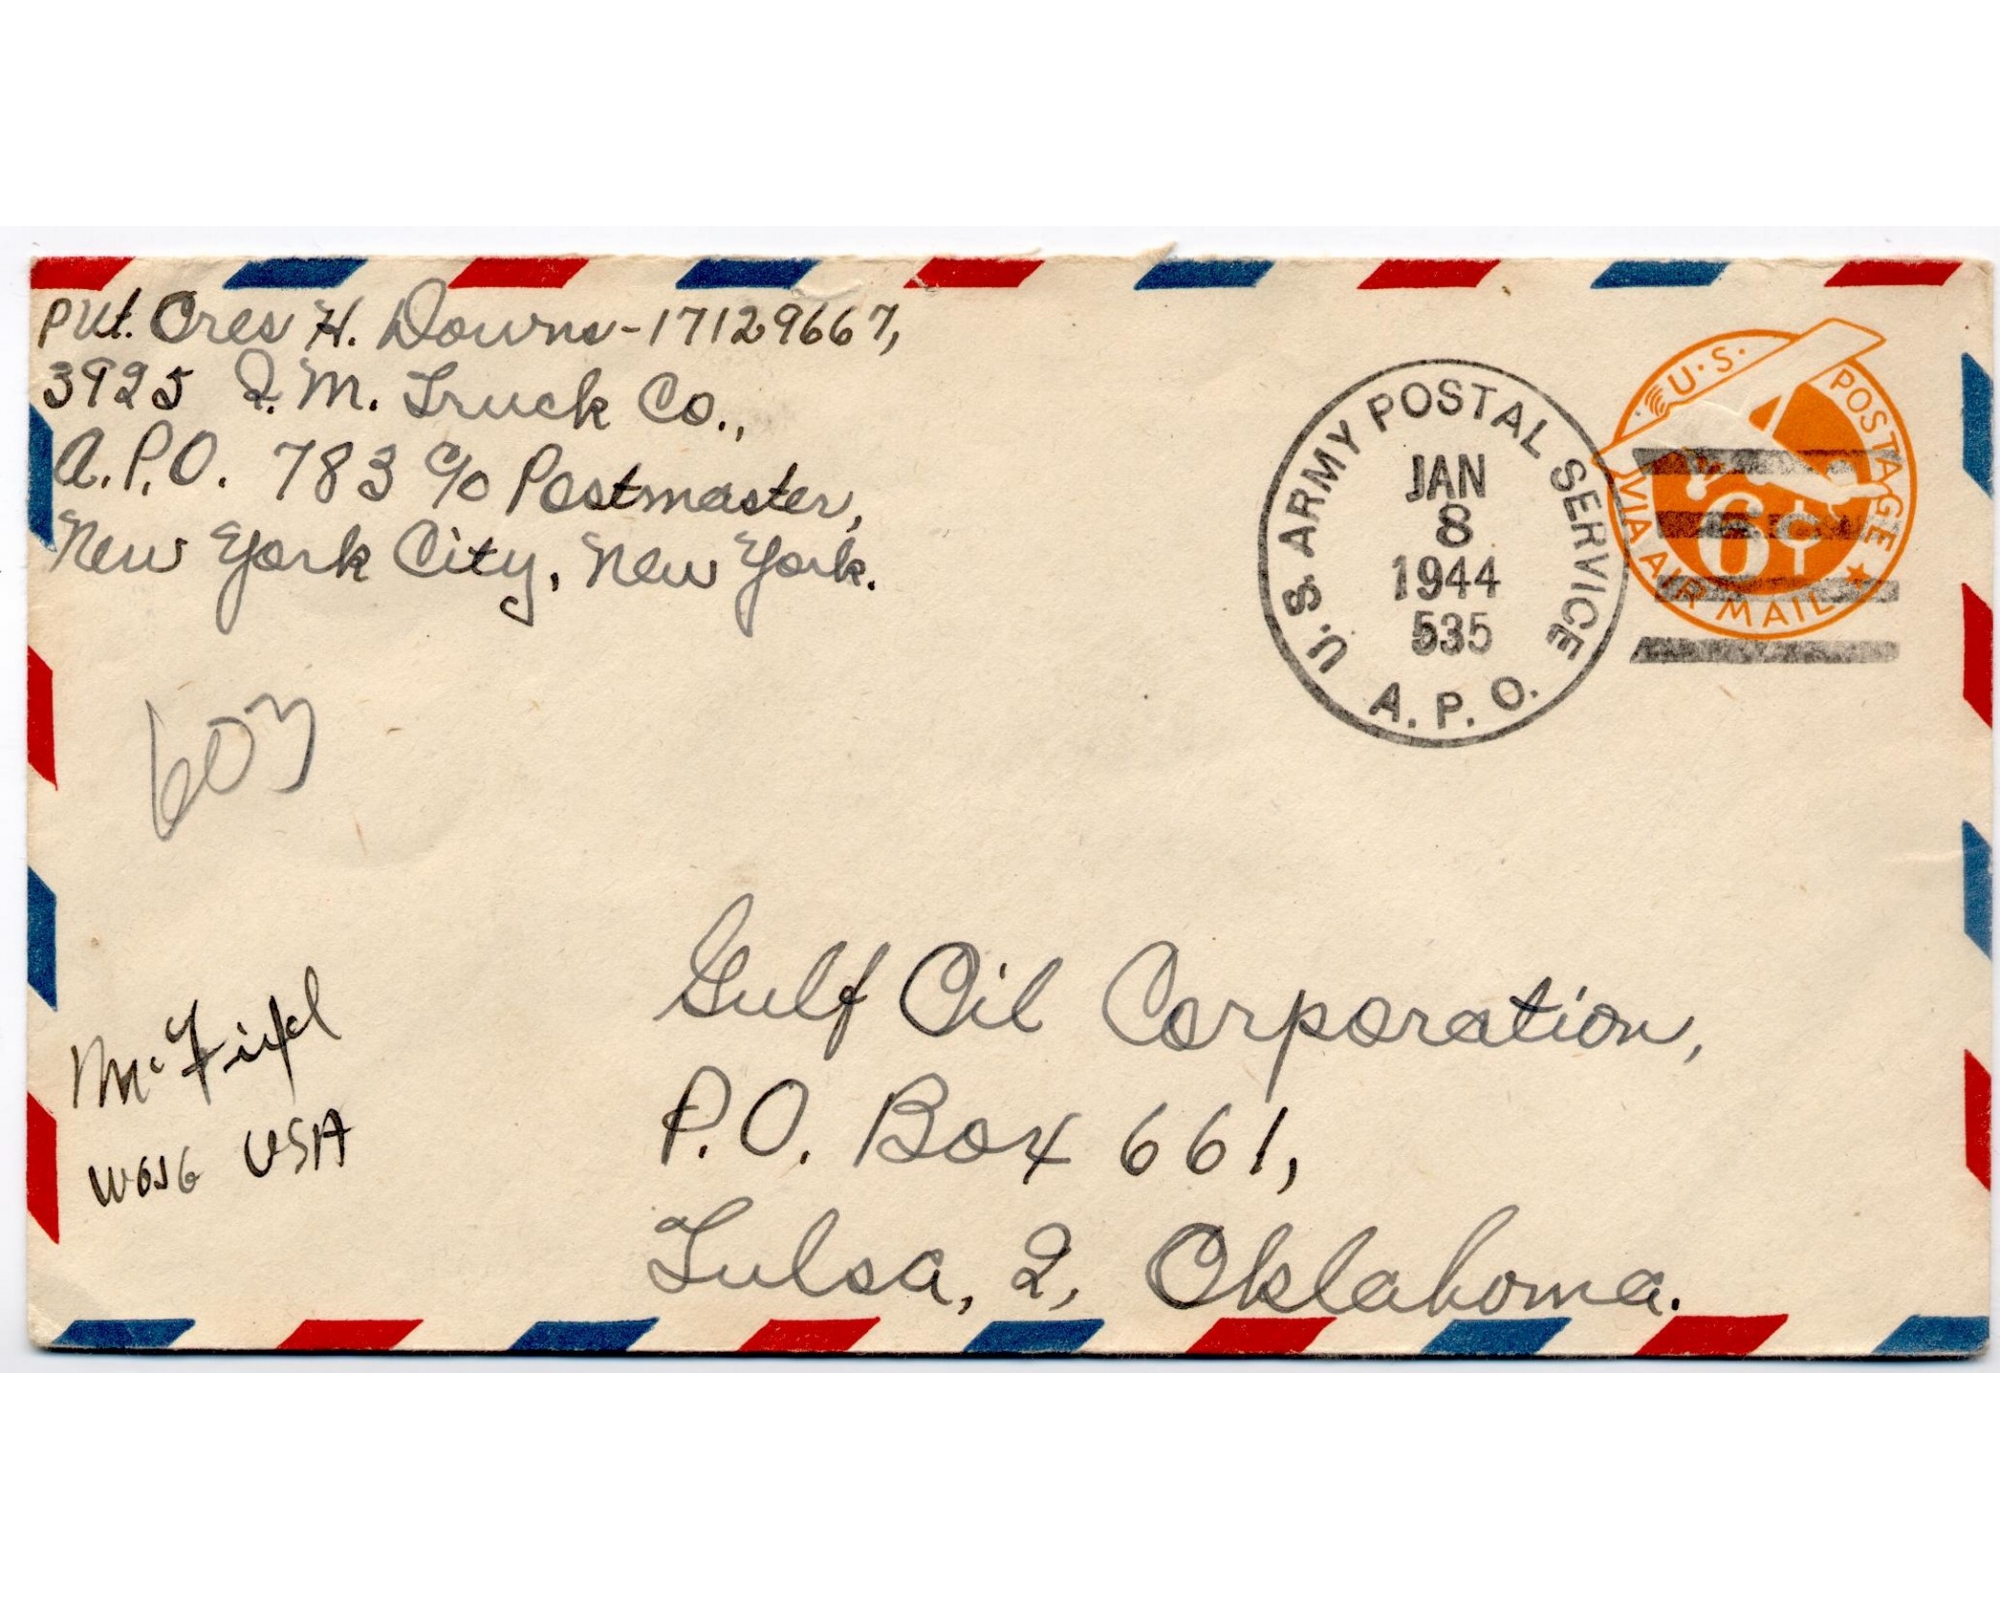 Pvt. Ores H. Downs-17129667,
3925 Q.M. Truck Co.,
A.P.O. 783 c/o Postmaster,
New York City, New York.
U.S. ARMY POSTAL SERVICE
JAN
8
1944
535
A.P.O.
U.S. POSTAGE
6¢
VIA AIR MAIL
603
Gulf Oil Corporation,
P.O. Box 661,
Tulsa, 2, Oklahoma.
USA